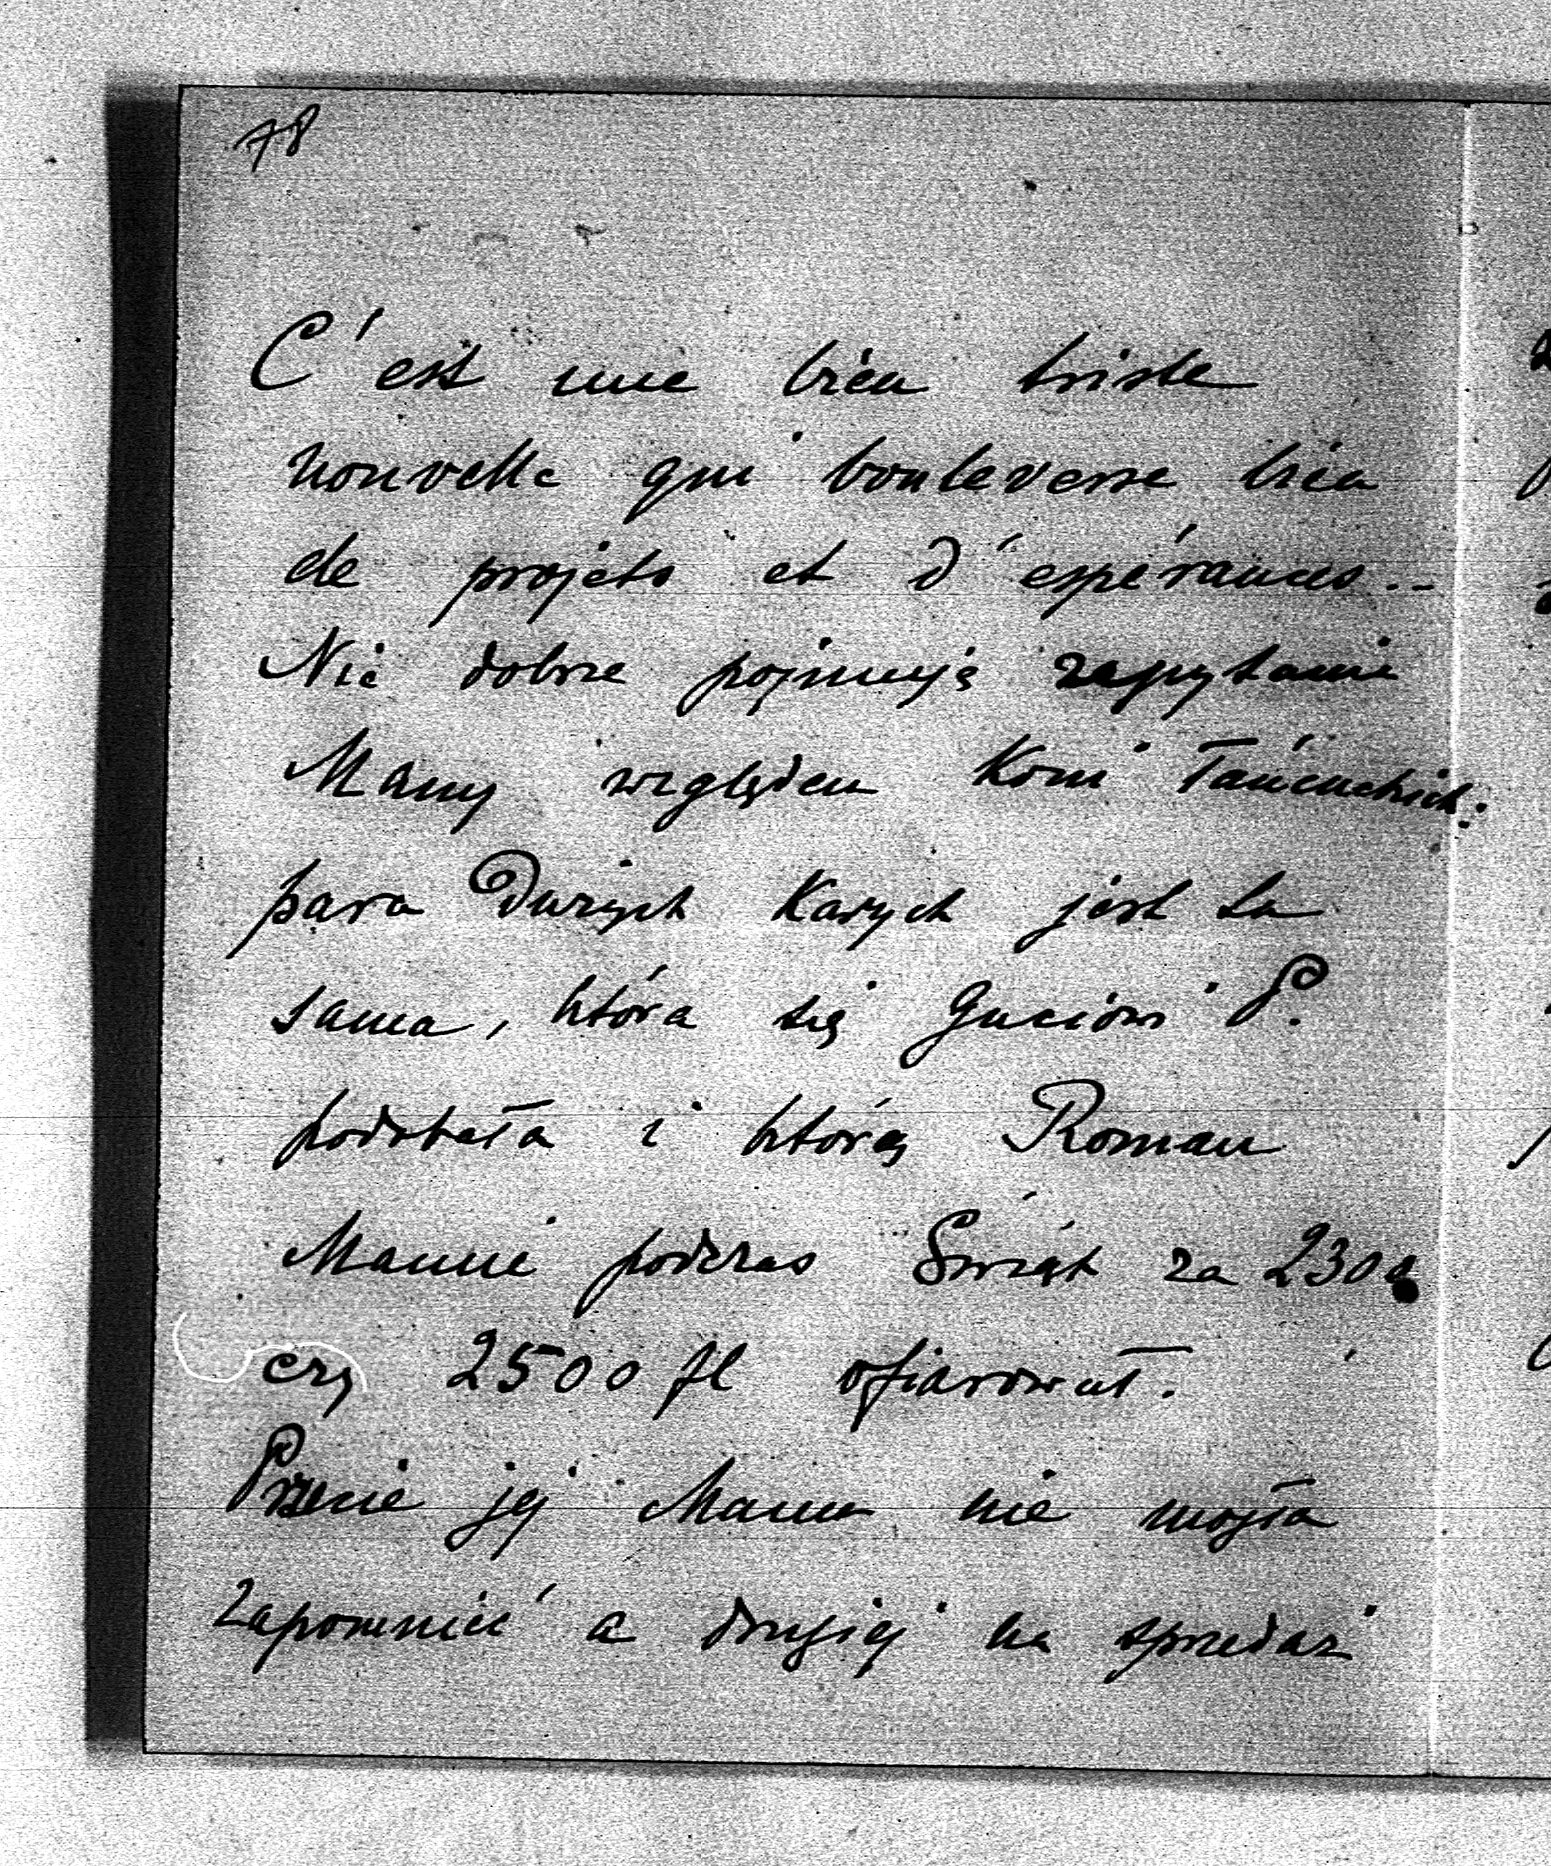 78
C'est une bien triste
nouvelle qui bouleverse bien
de projets et d'espérances..
Nie dobrze pojmuję zapytanie
Mamy względem koni Łańcuckich:
para dużych karych jest ta
sama, która się Guciowi P.
podobała i którą Roman
Mamie podczas Świąt za 2300
czy 2500 fl ofiarował.
Przecie jej Mama nie mogła
zapomnieć a drugiej na sprzedaż